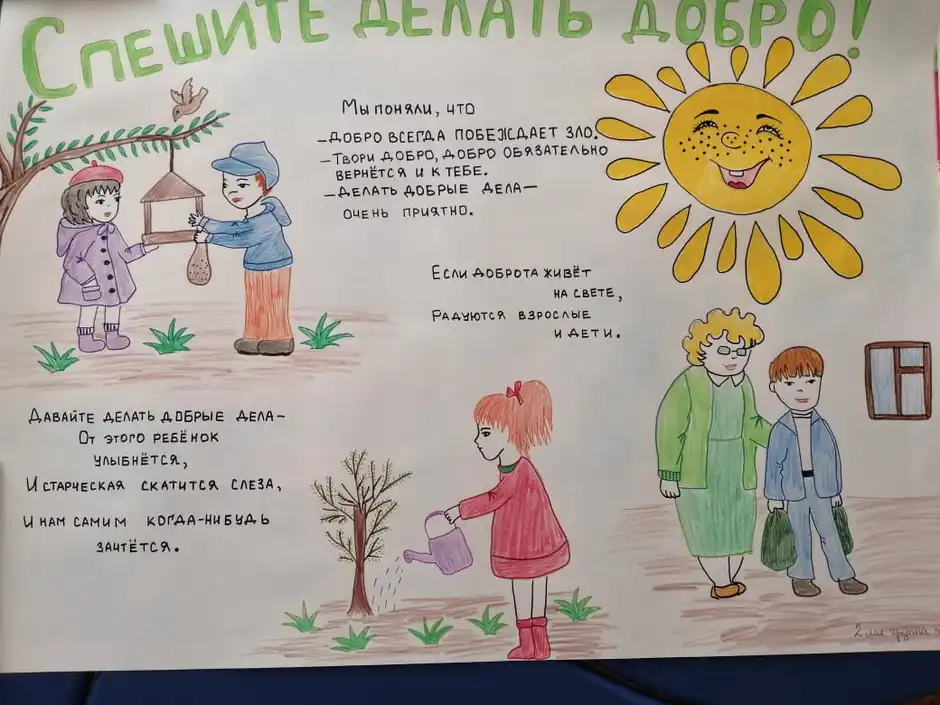 СПЕШИТЕ ДЕЛАТЬ ДОБРО!
МЫ ПОНЯЛИ, ЧТО
- ДОБРО ВСЕГДА ПОБЕЖДАЕТ ЗЛО.
- ТВОРИ ДОБРО, ДОБРО ОБЯЗАТЕЛЬНО
ВЕРНЁТСЯ И К ТЕБЕ.
- ДЕЛАТЬ ДОБРЫЕ ДЕЛА -
ОЧЕНЬ ПРИЯТНО.
ЕСЛИ ДОБРОТА ЖИВЁТ
НА СВЕТЕ,
РАДУЮТСЯ ВЗРОСЛЫЕ
И ДЕТИ.
ДАВАЙТЕ ДЕЛАТЬ ДОБРЫЕ ДЕЛА -
ОТ ЭТОГО РЕБЁНОК
УЛЫБНЁТСЯ,
И СТАРЧЕСКАЯ СКАТИТСЯ СЛЕЗА,
И НАМ САМИМ КОГДА-НИБУДЬ
ЗАЧТЁТСЯ.
группа